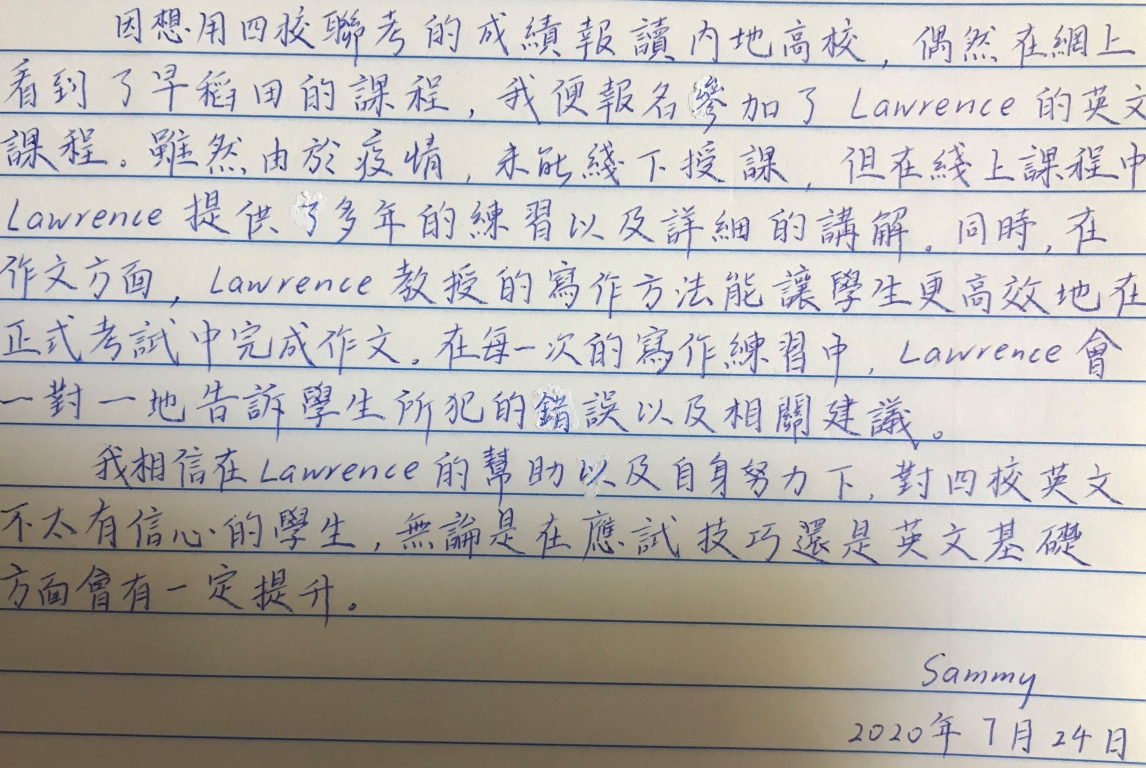 因想用四校聯考的成績報讀內地高校，偶然在網上
看到了早稻田的課程，我便報名參加了 Lawrence 的英文
課程。雖然由於疫情，未能綫下授課，但在綫上課程中
Lawrence 提供了多年的練習以及詳細的講解。同時，在
作文方面，Lawrence 教授的寫作方法能讓學生更高效地在
正式考試中完成作文。在每一次的寫作練習中，Lawrence 會
一對一地告訴學生所犯的錯誤以及相關建議。
我相信在 Lawrence 的幫助以及自身努力下，對四校英文
不太有信心的學生，無論是在應試技巧還是英文基礎
方面會有一定提升。
Sammy
2020年7月24日